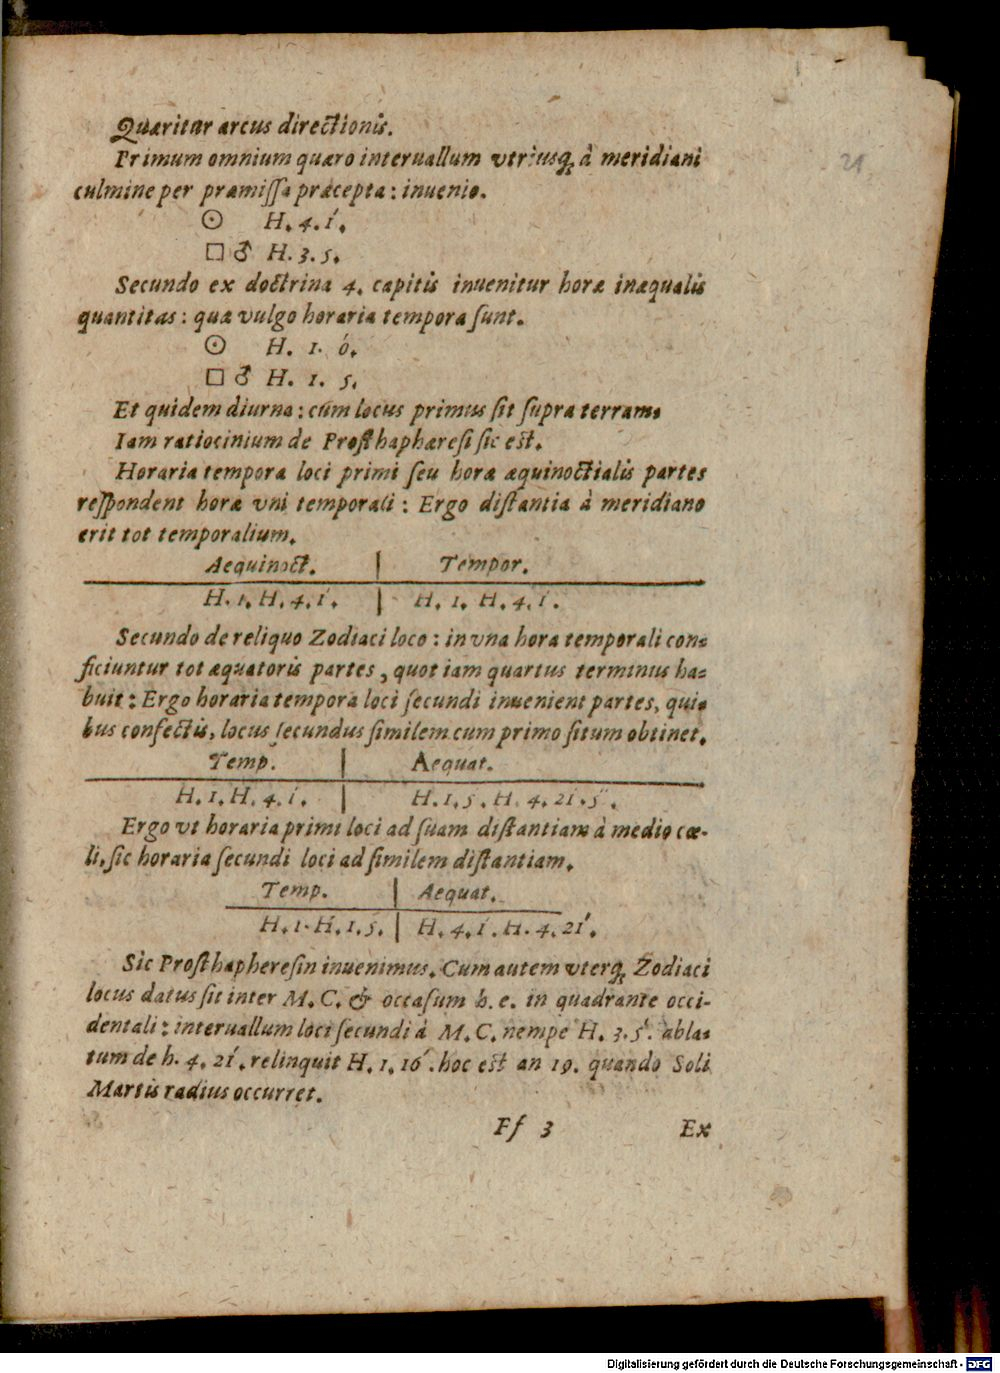 21
Quæritur arcus directionis.
Primum omnium quæro interuallum vtriusq; à meridiani
culmine per præmissa præcepta: inuenio.
☉ H. 4. 1'.
□ ♂ H. 3. 5.
Secundo ex doctrina 4. capitis inuenitur horæ inæqualis
quantitas: quæ vulgo horaria tempora sunt.
☉ H. 1. 0'.
□ ♂ H. 1. 5.
Et quidem diurna: cum locus primus sit supra terram.
Iam ratiocinium de Prosthaphæresi sic est.
Horaria tempora loci primi seu horæ æquinoctialis partes
respondent horæ vni temporali: Ergo distantia à meridiano
erit tot temporalium.
Aequinoct. | Tempor.
H. 1. H. 4. 1'. | H. 1. H. 4. 1'.
Secundo de reliquo Zodiaci loco: in vna hora temporali con-
ficiuntur tot æquatoris partes, quot iam quartus terminus ha-
buit: Ergo horaria tempora loci secundi inuenient partes, qui-
bus confectis, locus secundus similem cum primo situm obtinet.
Temp. | Aequat.
H. 1. H. 4. 1'. | H. 1. 5. H. 4. 21. 5''.
Ergo vt horaria primi loci ad suam distantiam à medio cœ-
li, sic horaria secundi loci ad similem distantiam.
Temp. | Aequat.
H. 1. H. 1. 5. | H. 4. 1'. H. 4. 21'.
Sic Prosthapheresin inuenimus. Cum autem vterq; Zodiaci
locus datus sit inter M. C. & occasum h. e. in quadrante occi-
dentali: interuallum loci secundi à M. C. nempe H. 3. 5'. abla-
tum de h. 4. 21'. relinquit H. 1. 16'. hoc est an 19. quando Soli
Martis radius occurret.
Ff 3 Ex
Digitalisierung gefördert durch die Deutsche Forschungsgemeinschaft - DFG